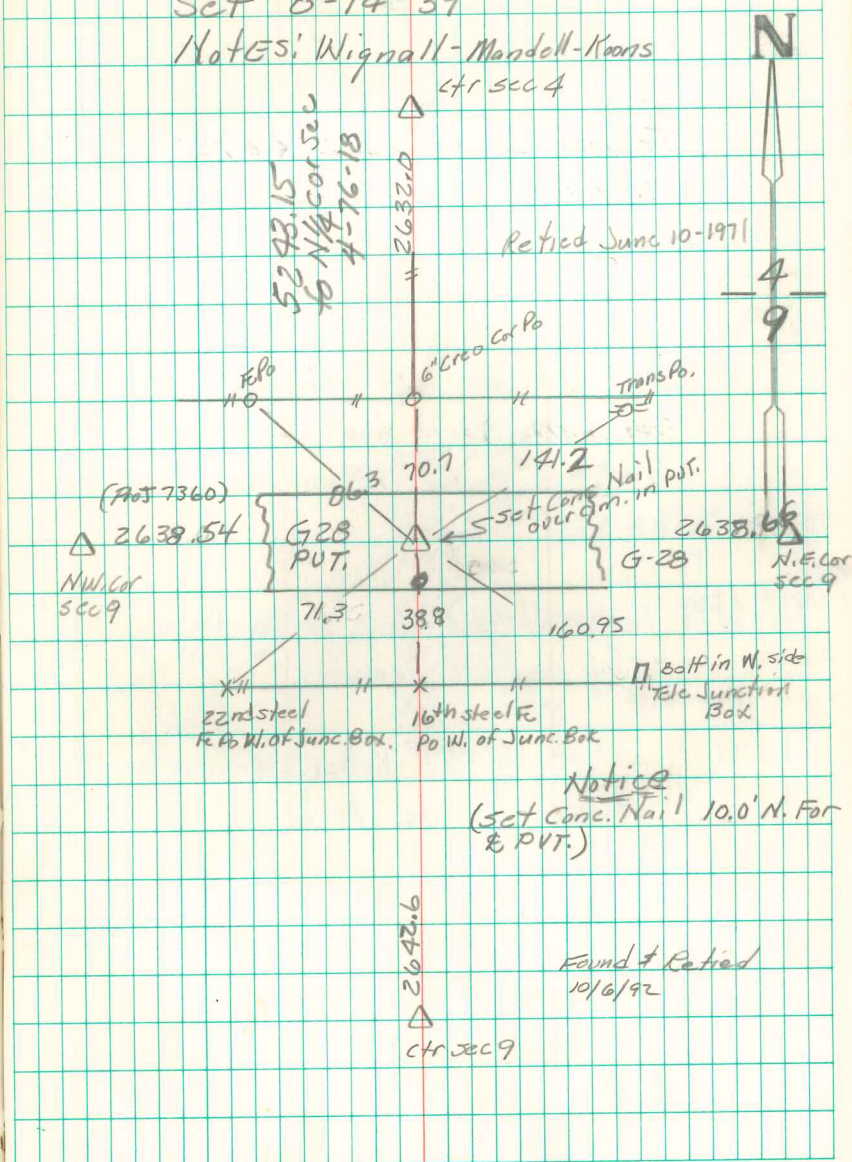 Set 8-14-57
Notes: Wignall-Mandell-Koons
N
Ctr Sec 4
5243.15
to N1/4 Cor Sec
4-76-18
2632.0
Retied June 10-1971
4
9
Fc Po
6" Creo Cor Po
Trans Po.
86.3
70.7
141.2
(Proj 7360)
2638.54
G28
PVT.
Set Conc Nail
over om. in pvt.
2638.68
G-28
N.W. Cor
Sec 9
N.E. Cor
Sec 9
71.3
38.8
160.95
22nd steel
Fc Po W. of Junc. Box.
16th steel Fc
Po W. of Junc. Box
Bolt in W. side
Tele Junction
Box
Notice
(Set Conc. Nail 10.0' N. For
℄ PVT.)
2642.6
Found & Retied
10/6/92
Ctr Sec 9